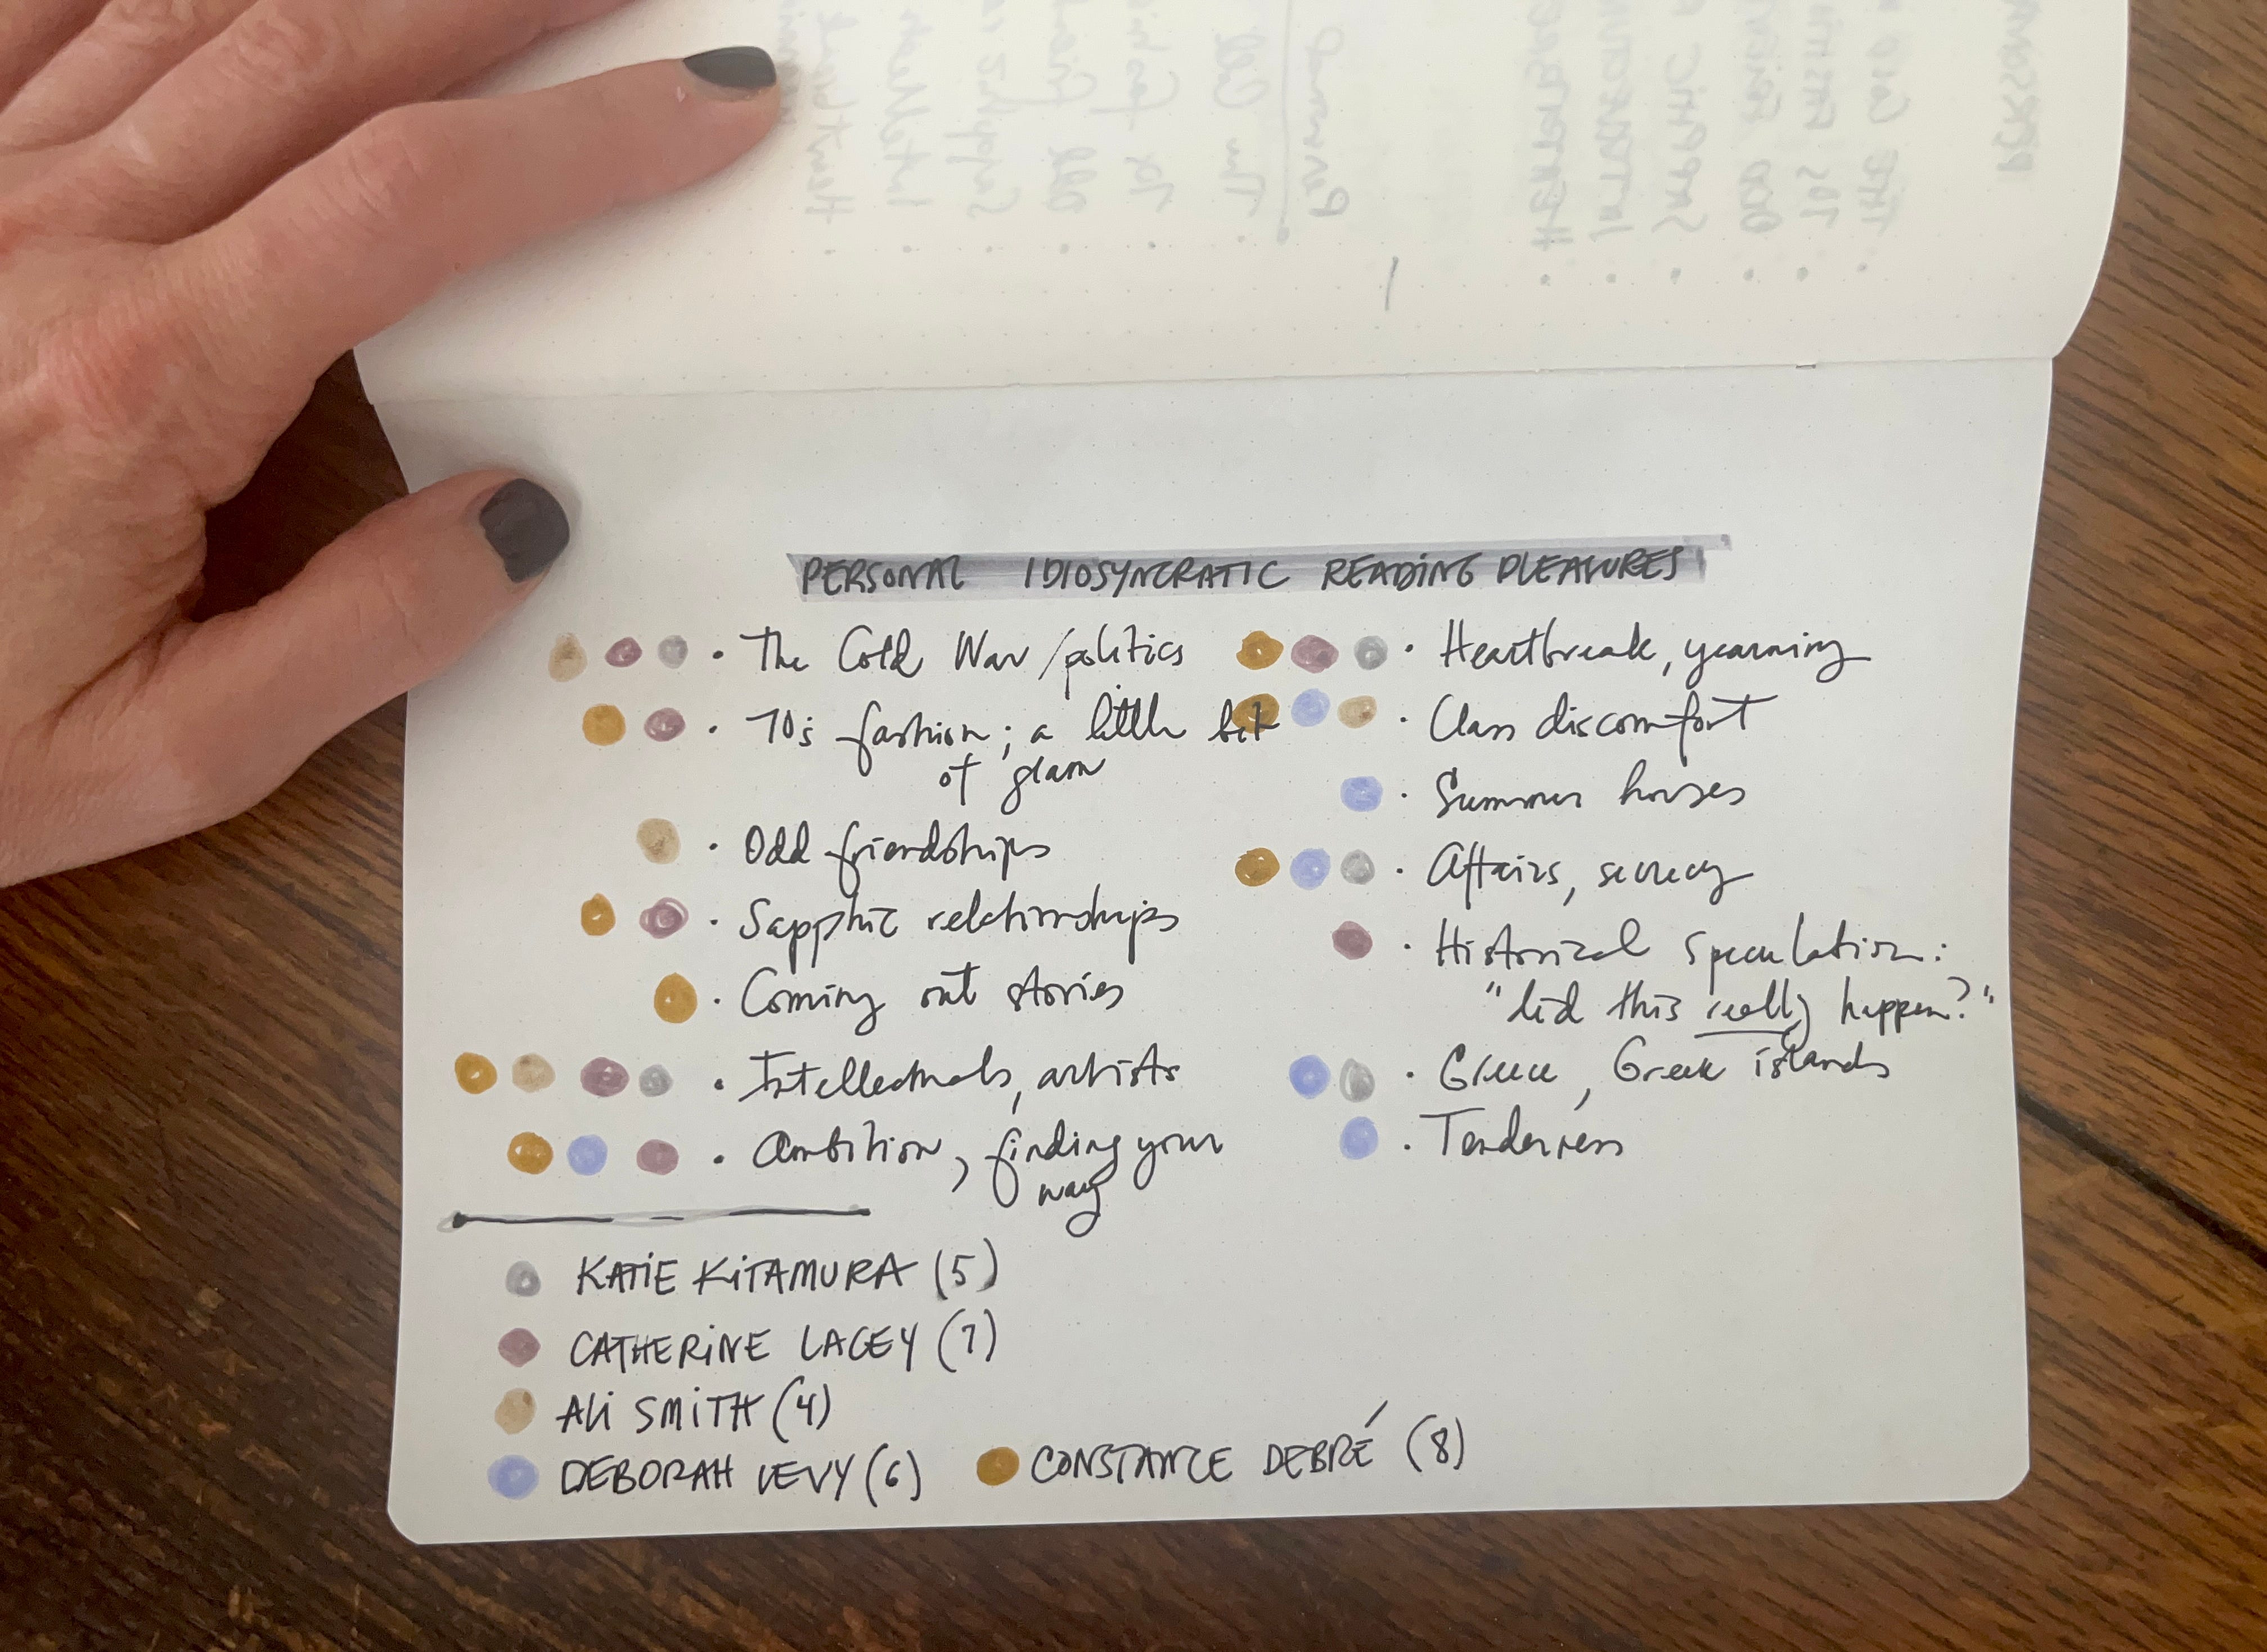 PERSONAL IDIOSYNCRATIC READING PLEASURES
• The Cold War/politics
• 70s fashion; a little bit
of glam
• Odd friendships
• Sapphic relationships
• Coming out stories
• Intellectuals, artists
• Ambition, finding your
way
• Heartbreak, yearning
• Class discomfort
• Summer houses
• Affairs, secrecy
• Historical speculation:
"did this really happen?"
• Greece, Greek islands
• Tenderness
KATIE KITAMURA (5)
CATHERINE LACEY (7)
ALI SMITH (4)
DEBORAH LEVY (6)
CONSTANCE DEBRÉ (8)